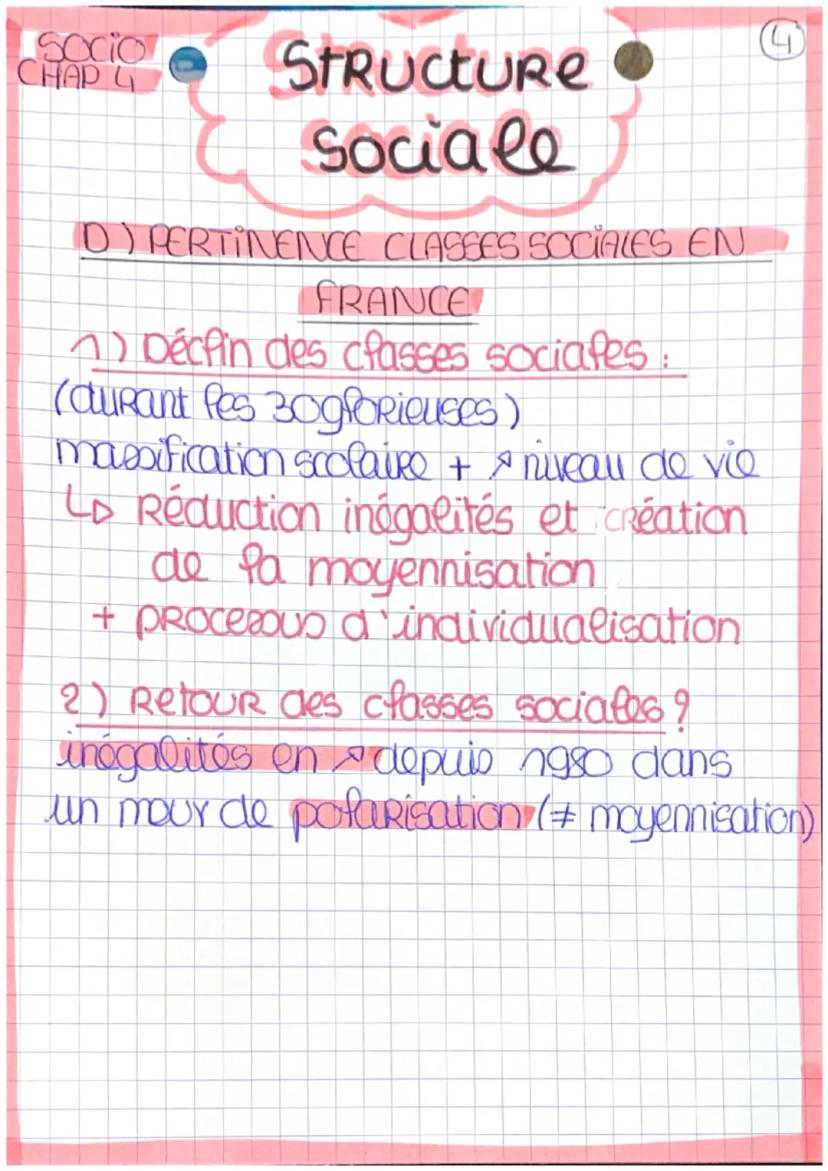 SOCIO
CHAP 4
4
STRUCTURE
sociale
D) PERTINENCE CLASSES SOCIALES EN
FRANCE
1) Déclin des classes sociales :
(durant les 30 glorieuses)
massification scolaire + ↗ niveau de vie
↳ Réduction inégalités et création
de la moyennisation
+ processus d'individualisation
2) Retour des classes sociales ?
inégalités en ↗ depuis 1980 dans
un mouv de polarisation (≠ moyennisation)